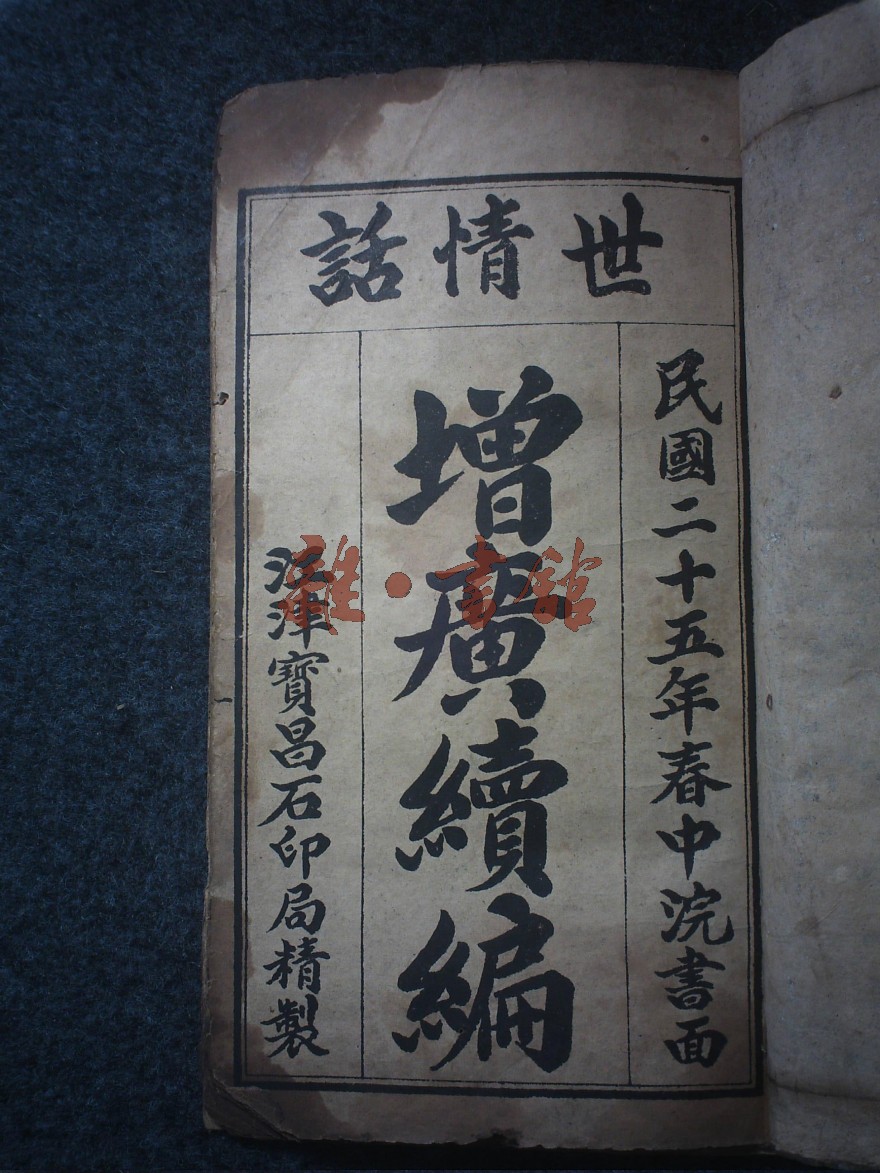 世情話
民國二十五年春中浣書面
增廣續編
江津寶昌石印局精製
雜·書館